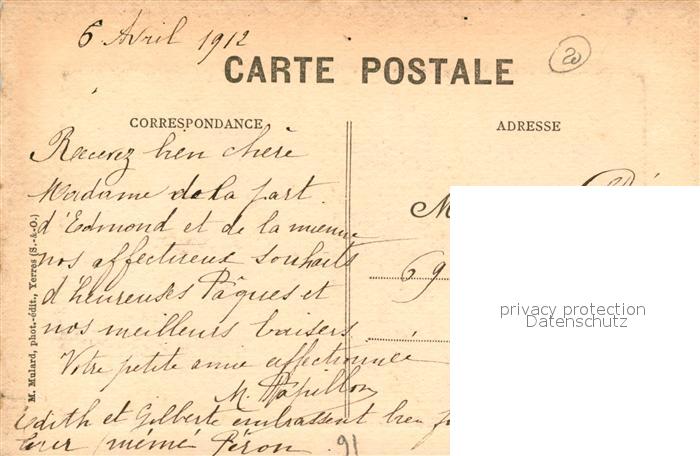 6 Avril 1912
20
CARTE POSTALE
CORRESPONDANCE
ADRESSE
Recevez bien chère
Madame de la part
d'Edmond et de la mienne
nos affectueux souhaits
d'heureuses Pâques et
nos meilleurs baisers
Votre petite amie affectionnée
M. Papillon
Edith et Gilberte embrassent bien
leur mémé Péron
91
M
69
M. Mulard, phot.-édit., Yerres (S.-&-O.)
privacy protection
Datenschutz